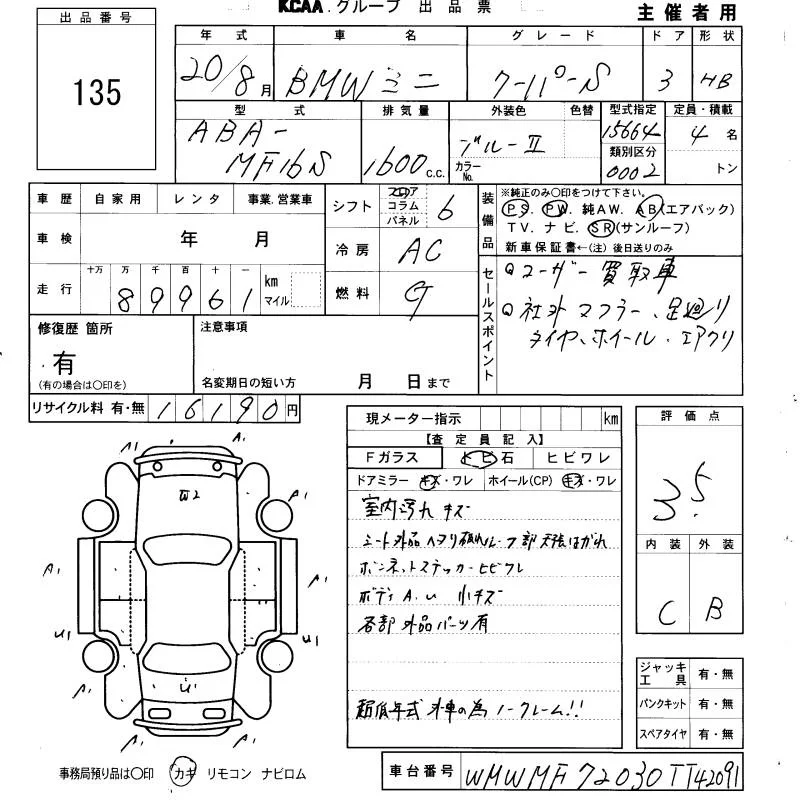 KCAA.グループ 出品票
主催者用
出品番号
135
年式 車名 グレード ドア 形状
20/8月 BMWミニ クーパーS 3 HB
型式 排気量 外装色 色替 型式指定 定員・積載
ABA-MF16S 1600c.c. ブルーⅡ 15664 4名
カラーNo. 類別区分
0002 トン
車歴 自家用 レンタ 事業.営業車
車検 年 月
走行 十万 万 千 百 十 一
89961 km マイル
シフト フロア コラム パネル 6
冷房 AC
燃料 G
装備品
※純正のみ○印をつけて下さい。
PS. PW. 純AW. AB(エアバック)
TV. ナビ. SR(サンルーフ)
新車保証書←(注)後日送りのみ
セールスポイント
ユーザー買取車
社外マフラー、足廻り
タイヤ、ホイール、エアクリ
修復歴 箇所
有
(有の場合は○印を)
注意事項
名変期日の短い方 月 日まで
リサイクル料 有・無 16190円
現メーター指示 km
【査定員記入】
Fガラス トビ石 ヒビワレ
ドアミラー キズ・ワレ ホイール(CP) キズ・ワレ
室内汚れ キズ
シート外品 ヘタリ破れ ルーフ部天張はがれ
ボンネットステッカーヒビワレ
ボディA.U 小キズ
各部外品パーツ有
超低年式 外車の為 ノークレーム!!
評価点
3.5
内装 外装
C B
ジャッキ工具 有・無
パンクキット 有・無
スペアタイヤ 有・無
A1 A1
W2
A1 A1
A1 A1
U1 U1
A1 A1
U1
A1 A1
事務局預り品は○印 カギ リモコン ナビロム
車台番号 WMWMF72030TT42091